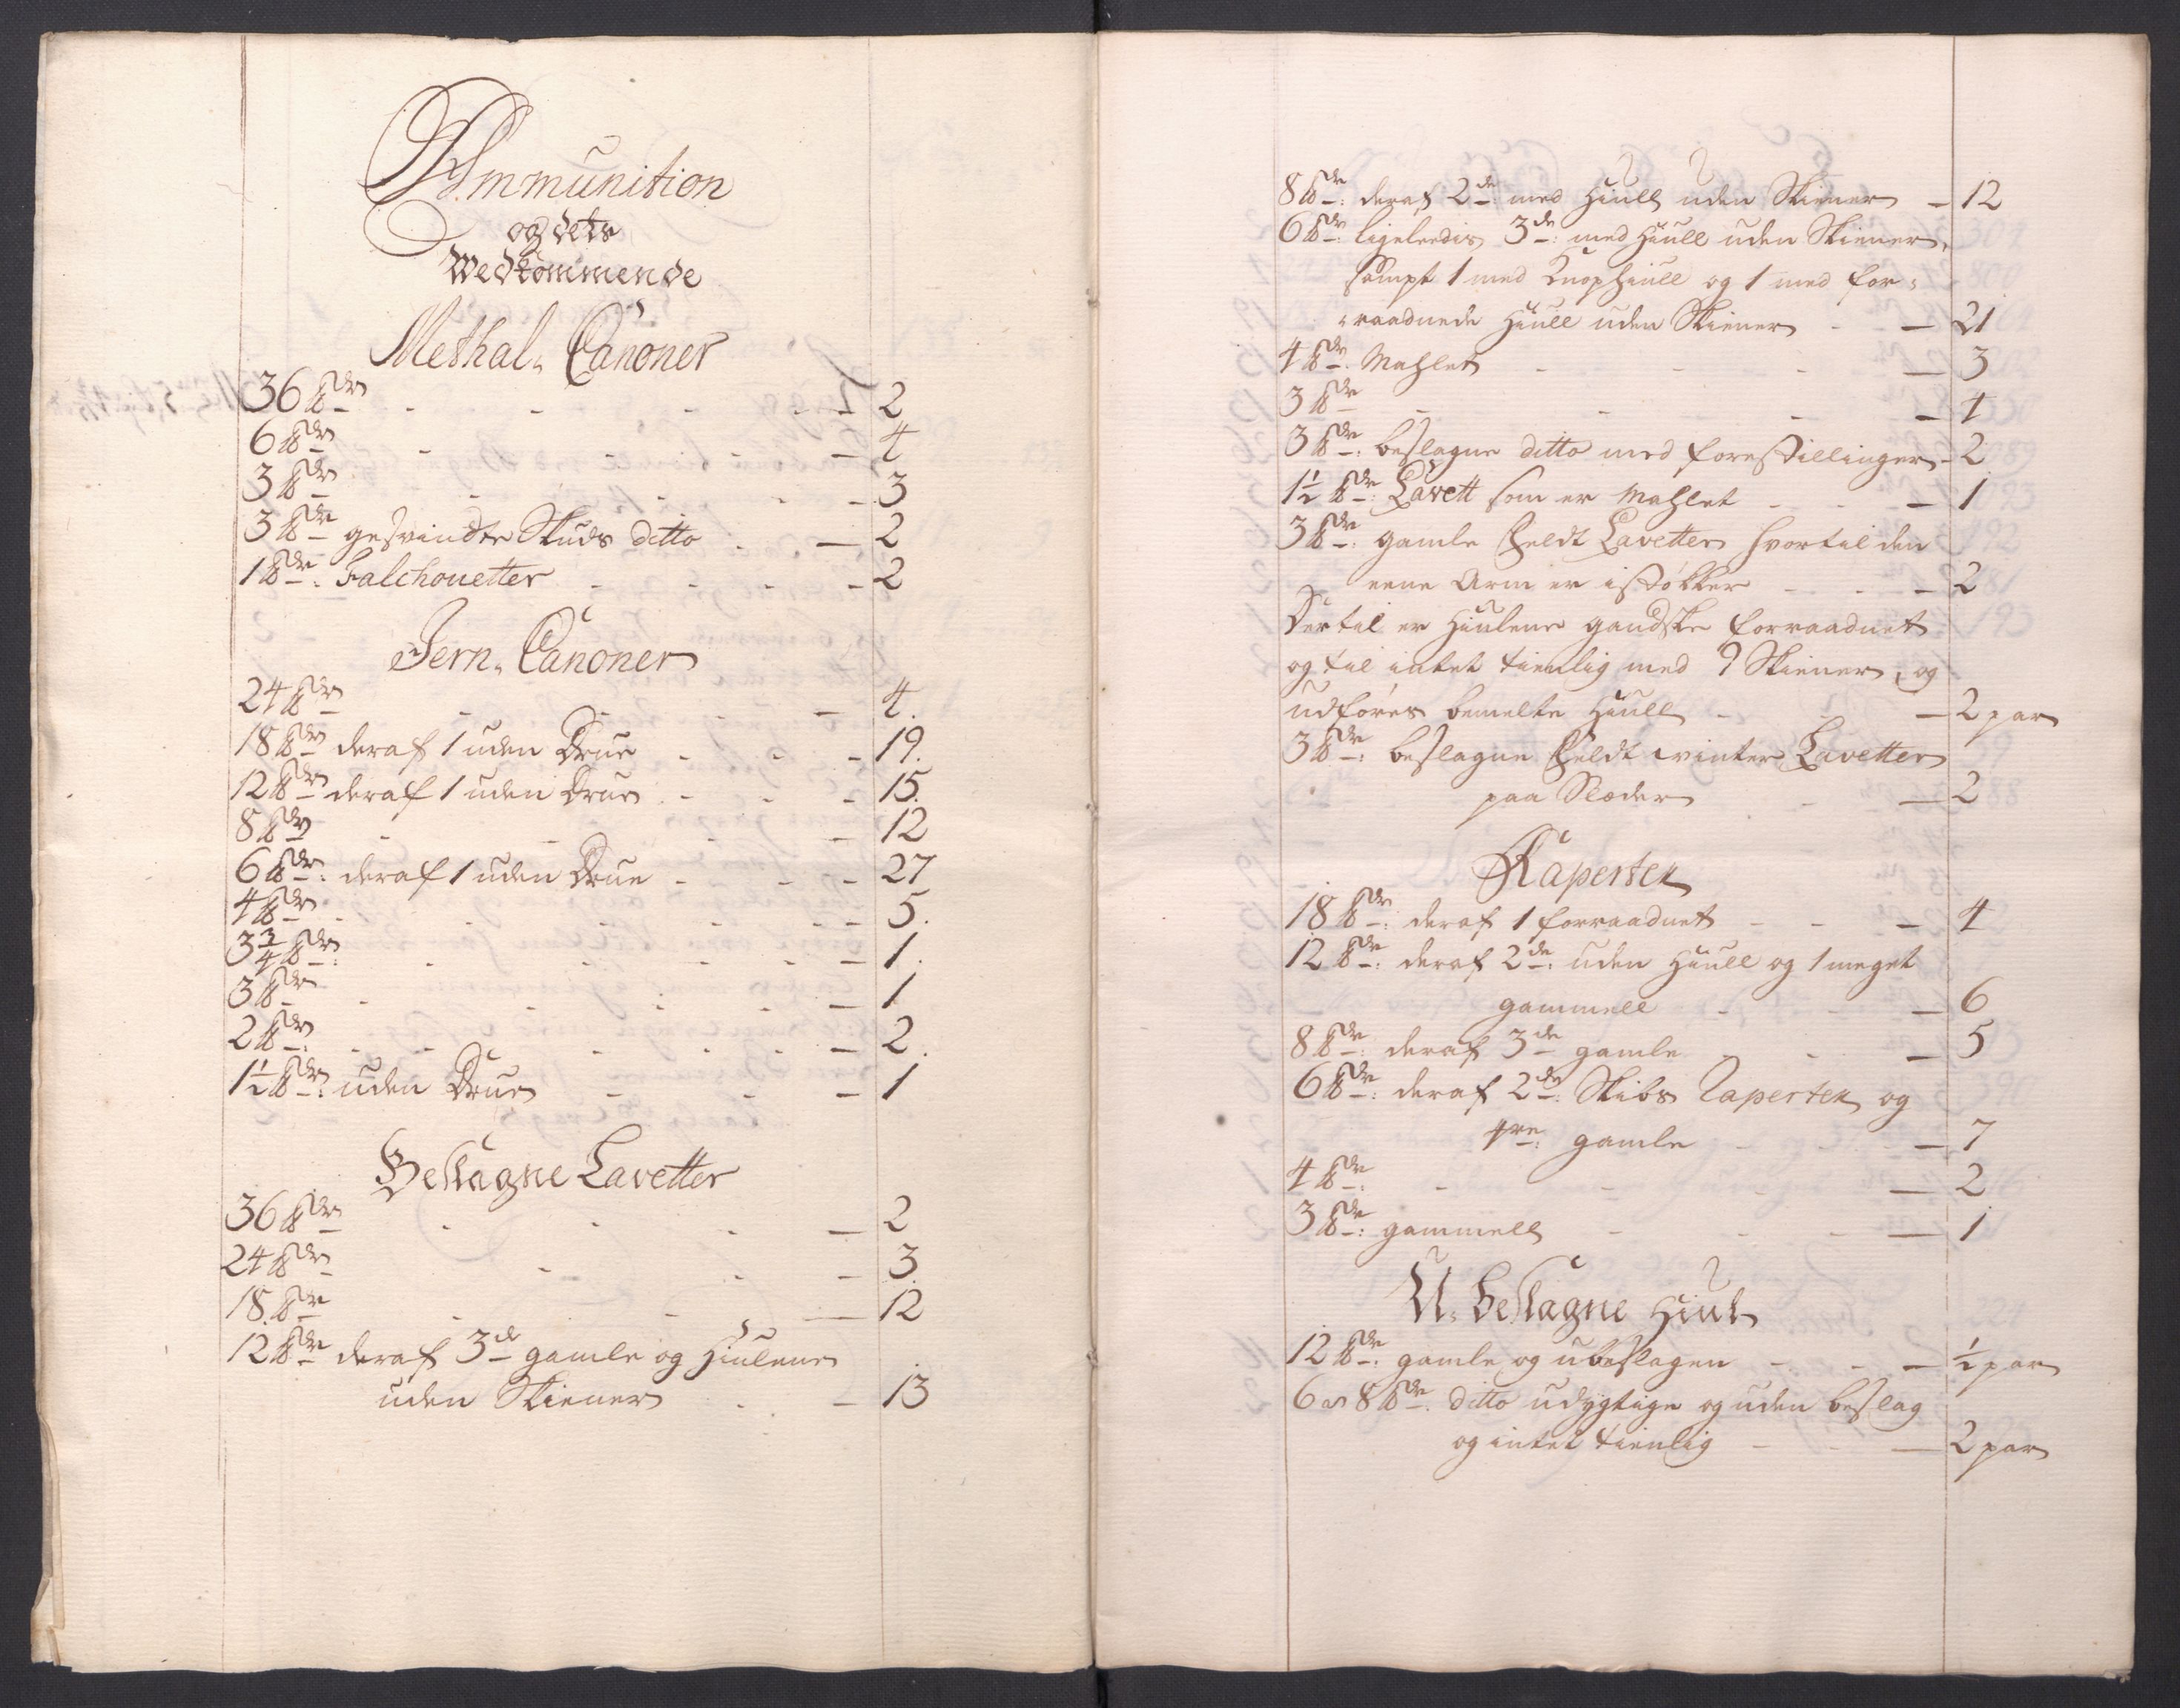 Ammunition
og dets
Wedkommende
Methal. Canoner
36 ℔dr - - - - 2
6 ℔dr - - - - 4
3 ℔dr - - - - 3
3 ℔dr gesvindte Skuds ditto - - 2
1 ℔dr: Falchonetter - - - - 2
Jern. Canoner
24 ℔dr - - - - 4.
18 ℔dr deraf 1 uden Drue - - - 19.
12 ℔dr deraf 1 uden Drue - - - 15.
8 ℔dr - - - - 12
6 ℔dr: deraf 1 uden Drue - - - 27
4 ℔dr - - - - 5.
3¾ ℔dr: - - - - 1.
3 ℔dr - - - - 1
2 ℔dr: - - - - 2.
1½ ℔dr: uden Drue - - - 1
Beslagne Lavetter
36 ℔dr - - - - 2
24 ℔dr - - - 3.
18. ℔dr - - - 12
12 ℔dr deraf 3de gamle og Hiulene
uden Skiener - - 13
8 ℔dr: deraf 2de: med Hiull uden Skiener - 12
6 ℔dr: ligeleedis 3de: med Hiull uden Skiener,
sampt 1 med Knophiull og 1 med for:
:raadnede Hiull uden Skiener - - 21
4 ℔dr. Mahlet - - - - 3
3 ℔dr - - - - 4
3 ℔dr: beslagne ditto med forestillinger - 2
1½ ℔dr: Lavett som er Mahlet - - - 1
3 ℔dr: gamle Feldt Lavetter hvortil den
eene Arm er istökker - - - 2
Dertil er Hiulene gandske forraadnet
og til intet tienlig med 9 Skiener, og
udföres bemelte Hiull - - 2 par
3 ℔dr: beslagne Feldt winter Lavetter
paa Slæder - - 2
Raperter
18 ℔dr: deraf 1 forraadnet - - - 4
12 ℔dr: deraf 2de: uden Hiull og 1 meget
gammell - - - 6
8 ℔dr: deraf 3de gamle - - - 5
6 ℔dr: deraf 2de: Skibs Raperter og
4re: gamle - - - 7
4 ℔dr: - - - - 2
3 ℔dr: gammell - - - - 1
U. beslagne Hiul
12 ℔dr: gamle og ubeslagen - - - ½ par
6 a 8 ℔dr. ditto udygtige og uden beslag
og intet tienlig - - - 2 par